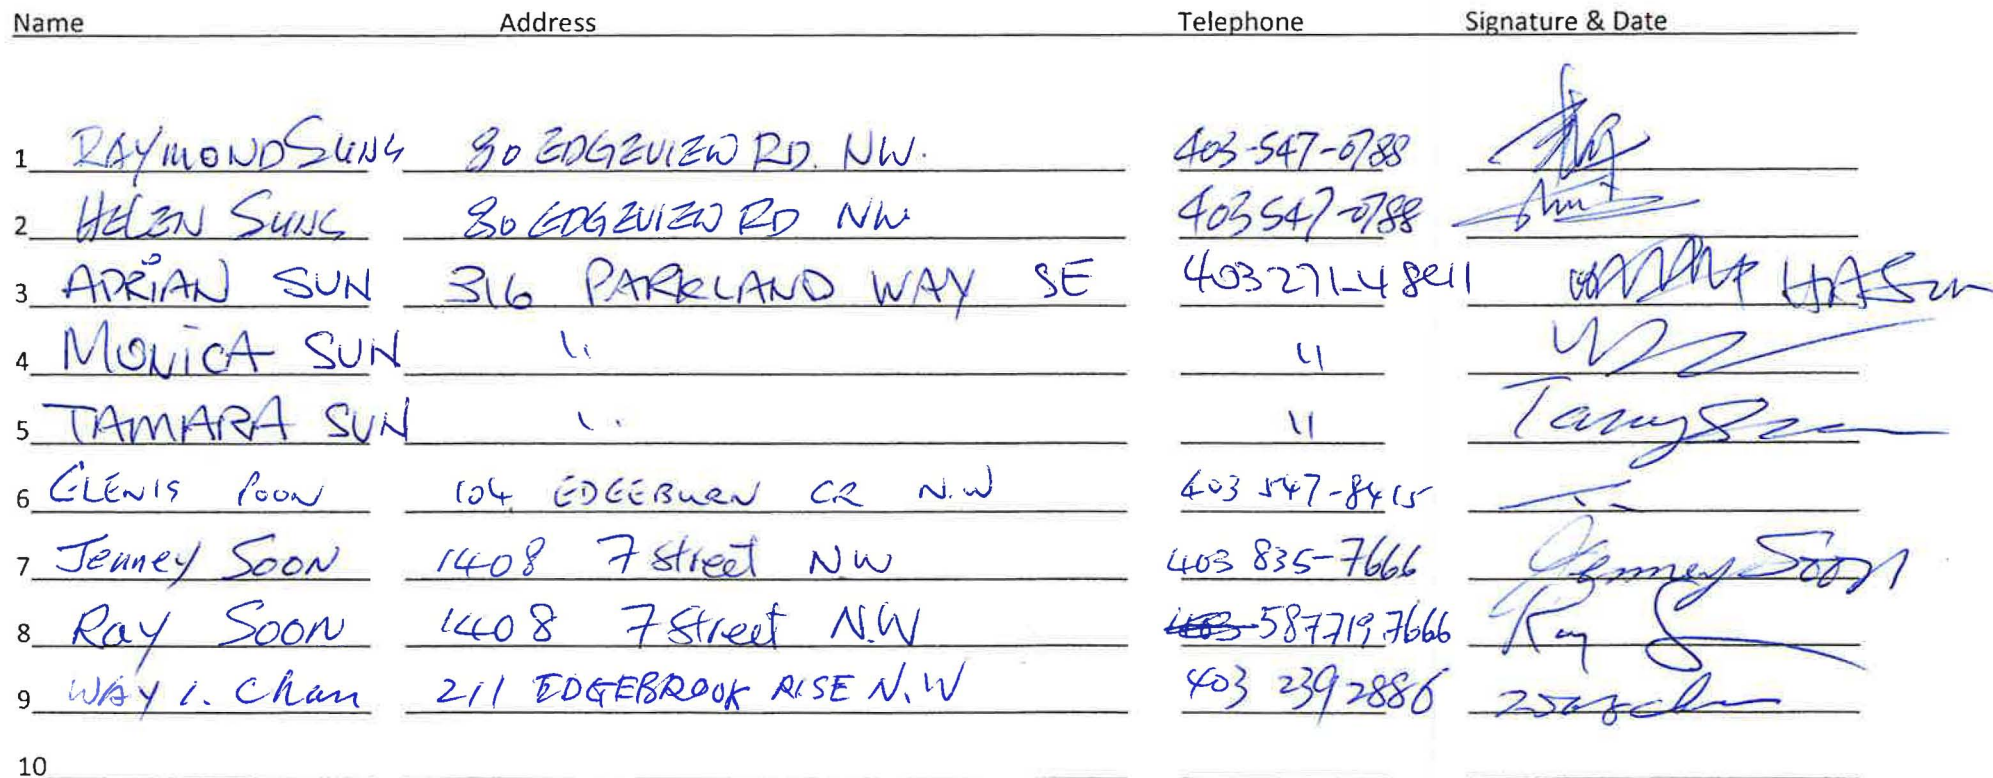 Name Address Telephone Signature & Date
1 RAYMOND SUNG 80 EDGEVIEW RD. NW. 403-547-0788
2 HELEN SUNG 80 EDGEVIEW RD NW 403 547-0788
3 ADRIAN SUN 316 PARKLAND WAY SE 403 271-4841 HASun
4 MONICA SUN " "
5 TAMARA SUN " "
6 GLENIS POON 104 EDGEBURN CR N.W 403 547-8415
7 Jenney SOON 1408 7 Street NW 403 835-7666 Jenney Soon
8 Ray SOON 1408 7 Street N.W 587 719 7666 Ray
9 WAY L. Chan 211 EDGEBROOK RISE N.W 403 239 2886
10